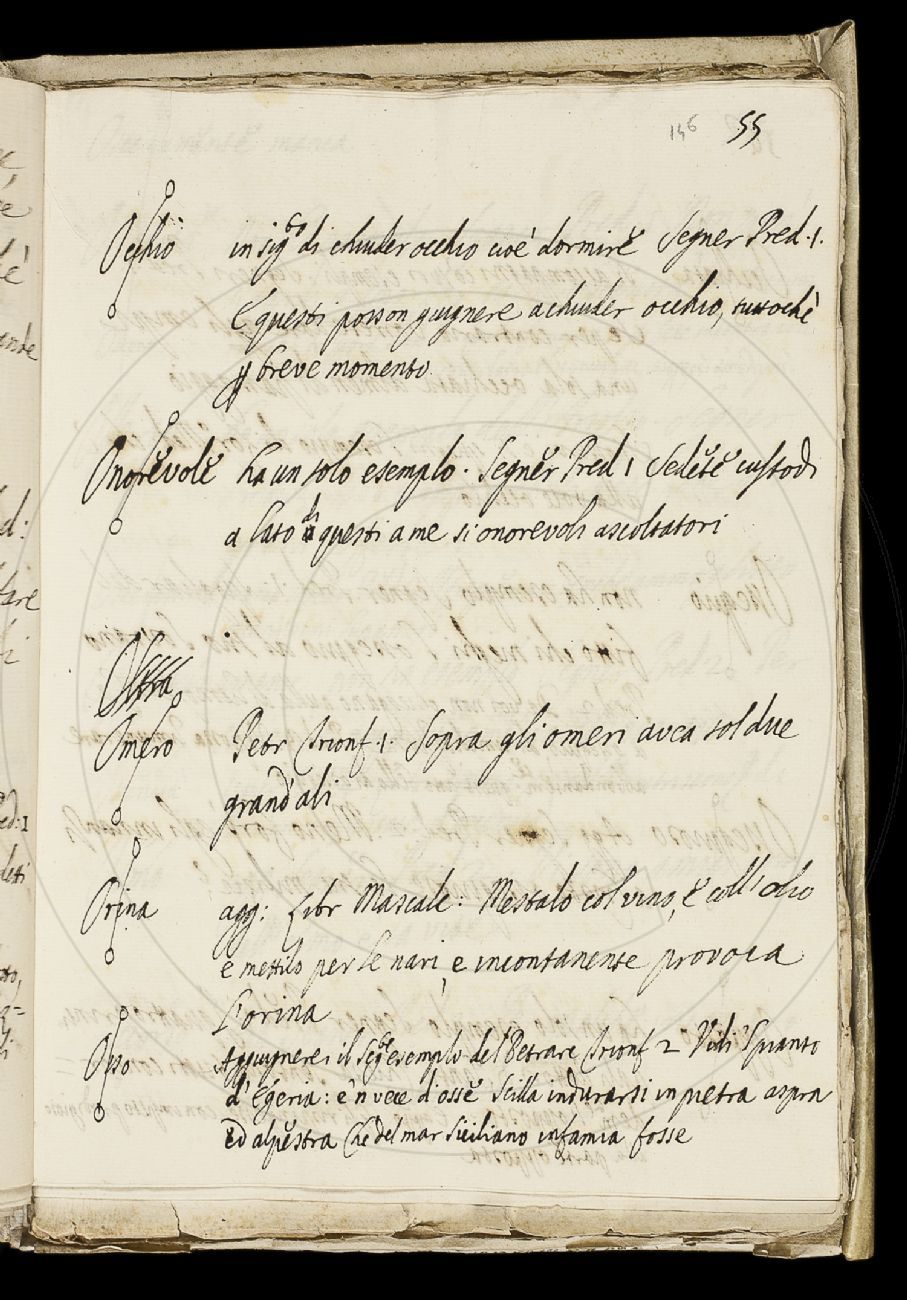 156 55
Occhio in sig.to di chiuder occhio cioè dormire Segner Pred. 1.
E questi posson giugnere a chiuder occhio, tuttochè
p breve momento
Onorevole ha un solo esempio. Segner Pred 1 Sedete custodi
a lato di questi a me sì onorevoli ascoltatori
Omero Petr Trionf. 1. Sopra gli omeri avea sol due
grand'ali
Orina agg: Libr Mascale: Mestalo col vino, e coll'olio
e mettilo per le nari, e incontanente provoca
l'orina
Osso Aggiugnerei il seg.e esemplo del Petrarc Trionf 2 Vidi 'l pianto
d'Egeria: e 'n vece d'osse Scilla indurarsi in pietra aspra
ed alpestra Che del mar Siciliano infamia fosse